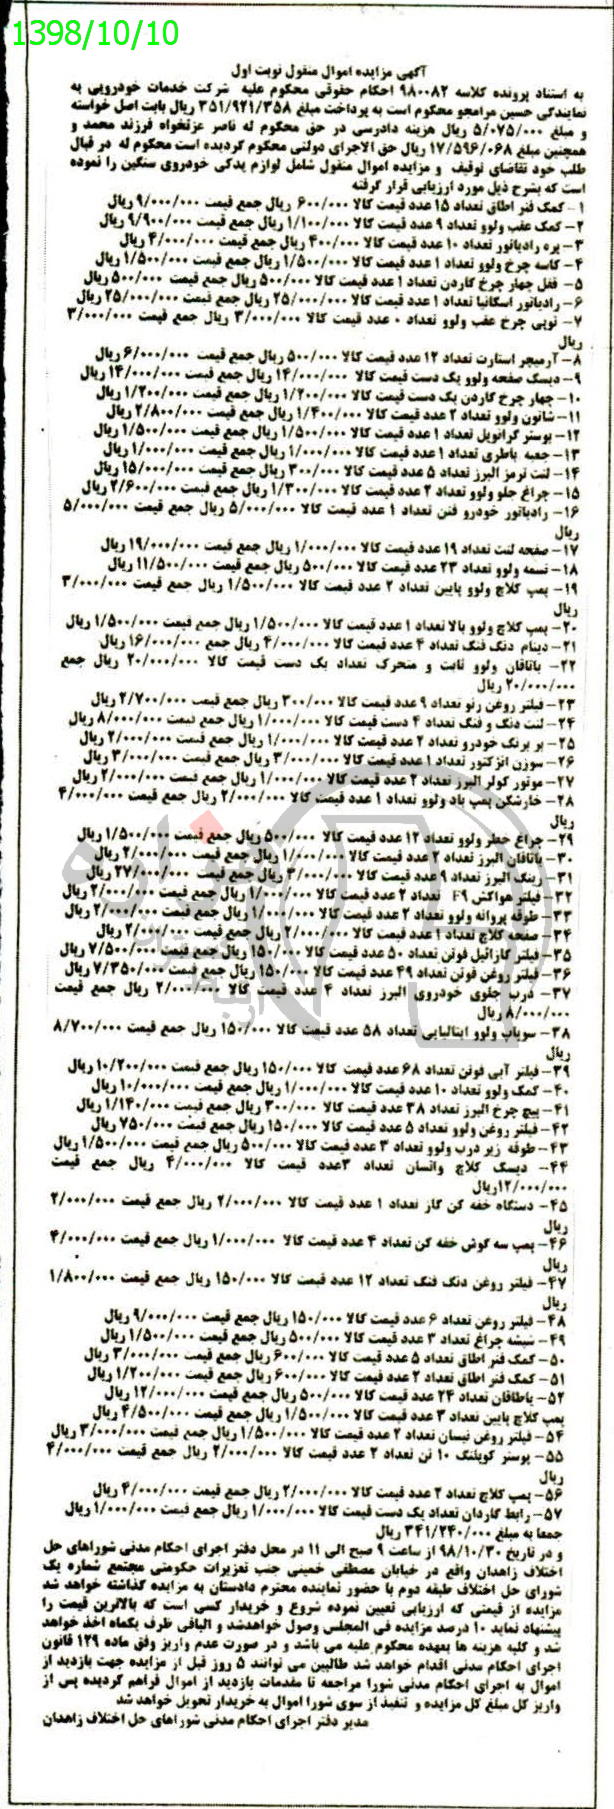 1398/10/10
آگهی مزایده اموال منقول نوبت اول
به استناد پرونده کلاسه ۹۸۰۰۸۲ احکام حقوقی محکوم علیه شرکت خدمات خودرویی به
نمایندگی حسین مرامجو محکوم است به پرداخت مبلغ ۳۵۱/۹۲۱/۳۵۸ ریال بابت اصل خواسته
و مبلغ ۵/۰۷۵/۰۰۰ ریال هزینه دادرسی در حق محکوم له ناصر عزتخواه فرزند محمد و
همچنین مبلغ ۱۷/۵۹۶/۰۶۸ ریال حق الاجرای دولتی محکوم گردیده است محکوم له در قبال
طلب خود تقاضای توقیف و مزایده اموال منقول شامل لوازم یدکی خودروی سنگین را نموده
است که بشرح ذیل مورد ارزیابی قرار گرفته
۱- کمک فنر اطاق تعداد ۱۵ عدد قیمت کالا ۶۰۰/۰۰۰ ریال جمع قیمت ۹/۰۰۰/۰۰۰ ریال
۲- کمک عقب ولوو تعداد ۹ عدد قیمت کالا ۱/۱۰۰/۰۰۰ ریال جمع قیمت ۹/۹۰۰/۰۰۰ ریال
۳- پره رادیاتور تعداد ۱۰ عدد قیمت کالا ۴۰۰/۰۰۰ ریال جمع قیمت ۴/۰۰۰/۰۰۰ ریال
۴- کاسه چرخ ولوو تعداد ۱ عدد قیمت کالا ۱/۵۰۰/۰۰۰ ریال جمع قیمت ۱/۵۰۰/۰۰۰ ریال
۵- قفل چهار چرخ گاردن تعداد ۱ عدد قیمت کالا ۵۰۰/۰۰۰ ریال جمع قیمت ۵۰۰/۰۰۰ ریال
۶- رادیاتور اسکانیا تعداد ۱ عدد قیمت کالا ۲۵/۰۰۰/۰۰۰ ریال جمع قیمت ۲۵/۰۰۰/۰۰۰ ریال
۷- توپی چرخ عقب ولوو تعداد ۰ عدد قیمت کالا ۳/۰۰۰/۰۰۰ ریال جمع قیمت ۳/۰۰۰/۰۰۰
ریال
۸- آرمیچر استارت تعداد ۱۲ عدد قیمت کالا ۵۰۰/۰۰۰ ریال جمع قیمت ۶/۰۰۰/۰۰۰ ریال
۹- دیسک صفحه ولوو یک دست قیمت کالا ۱۴/۰۰۰/۰۰۰ ریال جمع قیمت ۱۴/۰۰۰/۰۰۰ ریال
۱۰- چهار چرخ گاردن یک دست قیمت کالا ۱/۲۰۰/۰۰۰ ریال جمع قیمت ۱/۲۰۰/۰۰۰ ریال
۱۱- شاتون ولوو تعداد ۲ عدد قیمت کالا ۱/۴۰۰/۰۰۰ ریال جمع قیمت ۲/۸۰۰/۰۰۰ ریال
۱۲- بوستر گرانویل تعداد ۱ عدد قیمت کالا ۱/۵۰۰/۰۰۰ ریال جمع قیمت ۱/۵۰۰/۰۰۰ ریال
۱۳- جعبه باطری تعداد ۱ عدد قیمت کالا ۱/۰۰۰/۰۰۰ ریال جمع قیمت ۱/۰۰۰/۰۰۰ ریال
۱۴- لنت ترمز البرز تعداد ۵ عدد قیمت کالا ۳۰۰/۰۰۰ ریال جمع قیمت ۱۵/۰۰۰/۰۰۰ ریال
۱۵- چراغ جلو ولوو تعداد ۲ عدد قیمت کالا ۱/۳۰۰/۰۰۰ ریال جمع قیمت ۲/۶۰۰/۰۰۰ ریال
۱۶- رادیاتور خودرو فتن تعداد ۱ عدد قیمت کالا ۵/۰۰۰/۰۰۰ ریال جمع قیمت ۵/۰۰۰/۰۰۰
ریال
۱۷- صفحه لنت تعداد ۱۹ عدد قیمت کالا ۱/۰۰۰/۰۰۰ ریال جمع قیمت ۱۹/۰۰۰/۰۰۰ ریال
۱۸- تسمه ولوو تعداد ۲۳ عدد قیمت کالا ۵۰۰/۰۰۰ ریال جمع قیمت ۱۱/۵۰۰/۰۰۰ ریال
۱۹- پمپ کلاچ ولوو پایین تعداد ۲ عدد قیمت کالا ۱/۵۰۰/۰۰۰ ریال جمع قیمت ۳/۰۰۰/۰۰۰
ریال
۲۰- پمپ کلاچ ولوو بالا تعداد ۱ عدد قیمت کالا ۱/۵۰۰/۰۰۰ ریال جمع قیمت ۱/۵۰۰/۰۰۰ ریال
۲۱- دینام دنگ فنگ تعداد ۴ عدد قیمت کالا ۴/۰۰۰/۰۰۰ ریال جمع ۱۶/۰۰۰/۰۰۰ ریال
۲۲- یاتاقان ولوو ثابت و متحرک تعداد یک دست قیمت کالا ۲۰/۰۰۰/۰۰۰ ریال جمع
۲۰/۰۰۰/۰۰۰ ریال
۲۳- فیلتر روغن رنو تعداد ۹ عدد قیمت کالا ۳۰۰/۰۰۰ ریال جمع قیمت ۲/۷۰۰/۰۰۰ ریال
۲۴- لنت دنگ و فنگ تعداد ۴ دست قیمت کالا ۱/۰۰۰/۰۰۰ ریال جمع قیمت ۸/۰۰۰/۰۰۰ ریال
۲۵- بر برنگ خودرو تعداد ۲ عدد قیمت کالا ۱/۰۰۰/۰۰۰ ریال جمع قیمت ۲/۰۰۰/۰۰۰ ریال
۲۶- سوزن انژکتور تعداد ۱ عدد قیمت کالا ۳/۰۰۰/۰۰۰ ریال جمع قیمت ۳/۰۰۰/۰۰۰ ریال
۲۷- موتور کولر البرز تعداد ۲ عدد قیمت کالا ۱/۰۰۰/۰۰۰ ریال جمع قیمت ۲/۰۰۰/۰۰۰ ریال
۲۸- خارشکن پمپ باد ولوو تعداد ۱ عدد قیمت کالا ۲/۰۰۰/۰۰۰ ریال جمع قیمت ۴/۰۰۰/۰۰۰
ریال
۲۹- چراغ خطر ولوو تعداد ۱۲ عدد قیمت کالا ۵۰۰/۰۰۰ ریال جمع قیمت ۱/۵۰۰/۰۰۰ ریال
۳۰- یاتاقان البرز تعداد ۲ عدد قیمت کالا ۱/۰۰۰/۰۰۰ ریال جمع قیمت ۲/۰۰۰/۰۰۰ ریال
۳۱- رینگ البرز تعداد ۹ عدد قیمت کالا ۳/۰۰۰/۰۰۰ ریال جمع قیمت ۲۷/۰۰۰/۰۰۰ ریال
۳۲- فیلتر هواکش F9 تعداد ۲ عدد قیمت کالا ۱/۰۰۰/۰۰۰ ریال جمع قیمت ۲/۰۰۰/۰۰۰ ریال
۳۳- طوقه پروانه ولوو تعداد ۲ عدد قیمت کالا ۱/۰۰۰/۰۰۰ ریال جمع قیمت ۲/۰۰۰/۰۰۰ ریال
۳۴- صفحه کلاچ تعداد ۱ عدد قیمت کالا ۲/۰۰۰/۰۰۰ ریال جمع قیمت ۲/۰۰۰/۰۰۰ ریال
۳۵- فیلتر گازائیل فوتن تعداد ۵۰ عدد قیمت کالا ۱۵۰/۰۰۰ ریال جمع قیمت ۷/۵۰۰/۰۰۰ ریال
۳۶- فیلتر روغن فوتن تعداد ۴۹ عدد قیمت کالا ۱۵۰/۰۰۰ ریال جمع قیمت ۷/۳۵۰/۰۰۰ ریال
۳۷- درب جلوی خودروی البرز تعداد ۴ عدد قیمت کالا ۲/۰۰۰/۰۰۰ ریال جمع قیمت
۸/۰۰۰/۰۰۰ ریال
۳۸- سوپاپ ولوو ایتالیایی تعداد ۵۸ عدد قیمت کالا ۱۵۰/۰۰۰ ریال جمع قیمت ۸/۷۰۰/۰۰۰
ریال
۳۹- فیلتر آبی فوتن تعداد ۶۸ عدد قیمت کالا ۱۵۰/۰۰۰ ریال جمع قیمت ۱۰/۲۰۰/۰۰۰ ریال
۴۰- کمک ولوو تعداد ۱۰ عدد قیمت کالا ۱/۰۰۰/۰۰۰ ریال جمع قیمت ۱۰/۰۰۰/۰۰۰ ریال
۴۱- پیچ چرخ البرز تعداد ۳۸ عدد قیمت کالا ۳۰۰/۰۰۰ ریال جمع قیمت ۱/۱۴۰/۰۰۰ ریال
۴۲- فیلتر روغن ولوو تعداد ۵ عدد قیمت کالا ۱۵۰/۰۰۰ ریال جمع قیمت ۷۵۰/۰۰۰ ریال
۴۳- طوقه زیر درب ولوو تعداد ۳ عدد قیمت کالا ۵۰۰/۰۰۰ ریال جمع قیمت ۱/۵۰۰/۰۰۰ ریال
۴۴- دیسک کلاچ وانسان تعداد ۳عدد قیمت کالا ۴/۰۰۰/۰۰۰ ریال جمع قیمت
۱۲/۰۰۰/۰۰۰ریال
۴۵- دستگاه خفه کن گاز تعداد ۱ عدد قیمت کالا ۲/۰۰۰/۰۰۰ ریال جمع قیمت ۲/۰۰۰/۰۰۰
ریال
۴۶- پمپ سه گوش خفه کن تعداد ۴ عدد قیمت کالا ۱/۰۰۰/۰۰۰ ریال جمع قیمت ۴/۰۰۰/۰۰۰
ریال
۴۷- فیلتر روغن دنگ فنگ تعداد ۱۲ عدد قیمت کالا ۱۵۰/۰۰۰ ریال جمع قیمت ۱/۸۰۰/۰۰۰
ریال
۴۸- فیلتر روغن تعداد ۶ عدد قیمت کالا ۱۵۰/۰۰۰ ریال جمع قیمت ۹/۰۰۰/۰۰۰ ریال
۴۹- شیشه چراغ تعداد ۳ عدد قیمت کالا ۵۰۰/۰۰۰ ریال جمع قیمت ۱/۵۰۰/۰۰۰ ریال
۵۰- کمک فنر اطاق تعداد ۵ عدد قیمت کالا ۶۰۰/۰۰۰ ریال جمع قیمت ۳/۰۰۰/۰۰۰ ریال
۵۱- کمک فنر اطاق تعداد ۲ عدد قیمت کالا ۶۰۰/۰۰۰ ریال جمع قیمت ۱/۲۰۰/۰۰۰ ریال
۵۲- یاطاقان تعداد ۲۴ عدد قیمت کالا ۵۰۰/۰۰۰ ریال جمع قیمت ۱۲/۰۰۰/۰۰۰ ریال
پمپ کلاچ پایین تعداد ۳ عدد قیمت کالا ۱/۵۰۰/۰۰۰ ریال جمع قیمت ۴/۵۰۰/۰۰۰ ریال
۵۴- فیلتر روغن نیسان تعداد ۲ عدد قیمت کالا ۱/۵۰۰/۰۰۰ ریال جمع قیمت ۳/۰۰۰/۰۰۰ ریال
۵۵- بوستر کوپلنگ ۱۰ تن تعداد ۲ عدد قیمت کالا ۲/۰۰۰/۰۰۰ ریال جمع قیمت ۴/۰۰۰/۰۰۰
ریال
۵۶- پمپ کلاچ تعداد ۲ عدد قیمت کالا ۲/۰۰۰/۰۰۰ ریال جمع قیمت ۴/۰۰۰/۰۰۰ ریال
۵۷- رابط گاردان تعداد یک دست قیمت کالا ۱/۰۰۰/۰۰۰ ریال جمع قیمت ۱/۰۰۰/۰۰۰ ریال
جمعا به مبلغ ۳۴۱/۲۴۰/۰۰۰ ریال
و در تاریخ ۹۸/۱۰/۳۰ از ساعت ۹ صبح الی ۱۱ در محل دفتر اجرای احکام مدنی شوراهای حل
اختلاف زاهدان واقع در خیابان مصطفی خمینی جنب تعزیرات حکومتی مجتمع شماره یک
شورای حل اختلاف طبقه دوم با حضور نماینده محترم دادستان به مزایده گذاشته خواهد شد
مزایده از قیمتی که ارزیابی تعیین نموده شروع و خریدار کسی است که بالاترین قیمت را
پیشنهاد نماید ۱۰ درصد مزایده فی المجلس وصول خواهدشد و الباقی ظرف یکماه اخذ خواهد
شد و کلیه هزینه ها بعهده محکوم علیه می باشد و در صورت عدم واریز وفق ماده ۱۲۹ قانون
اجرای احکام مدنی اقدام خواهد شد طالبین می توانند ۵ روز قبل از مزایده جهت بازدید از
اموال به اجرای احکام مدنی شورا مراجعه تا مقدمات بازدید از اموال فراهم گردیده پس از
واریز کل مبلغ کل مزایده و تنفیذ از سوی شورا اموال به خریدار تحویل خواهد شد
مدیر دفتر اجرای احکام مدنی شوراهای حل اختلاف زاهدان